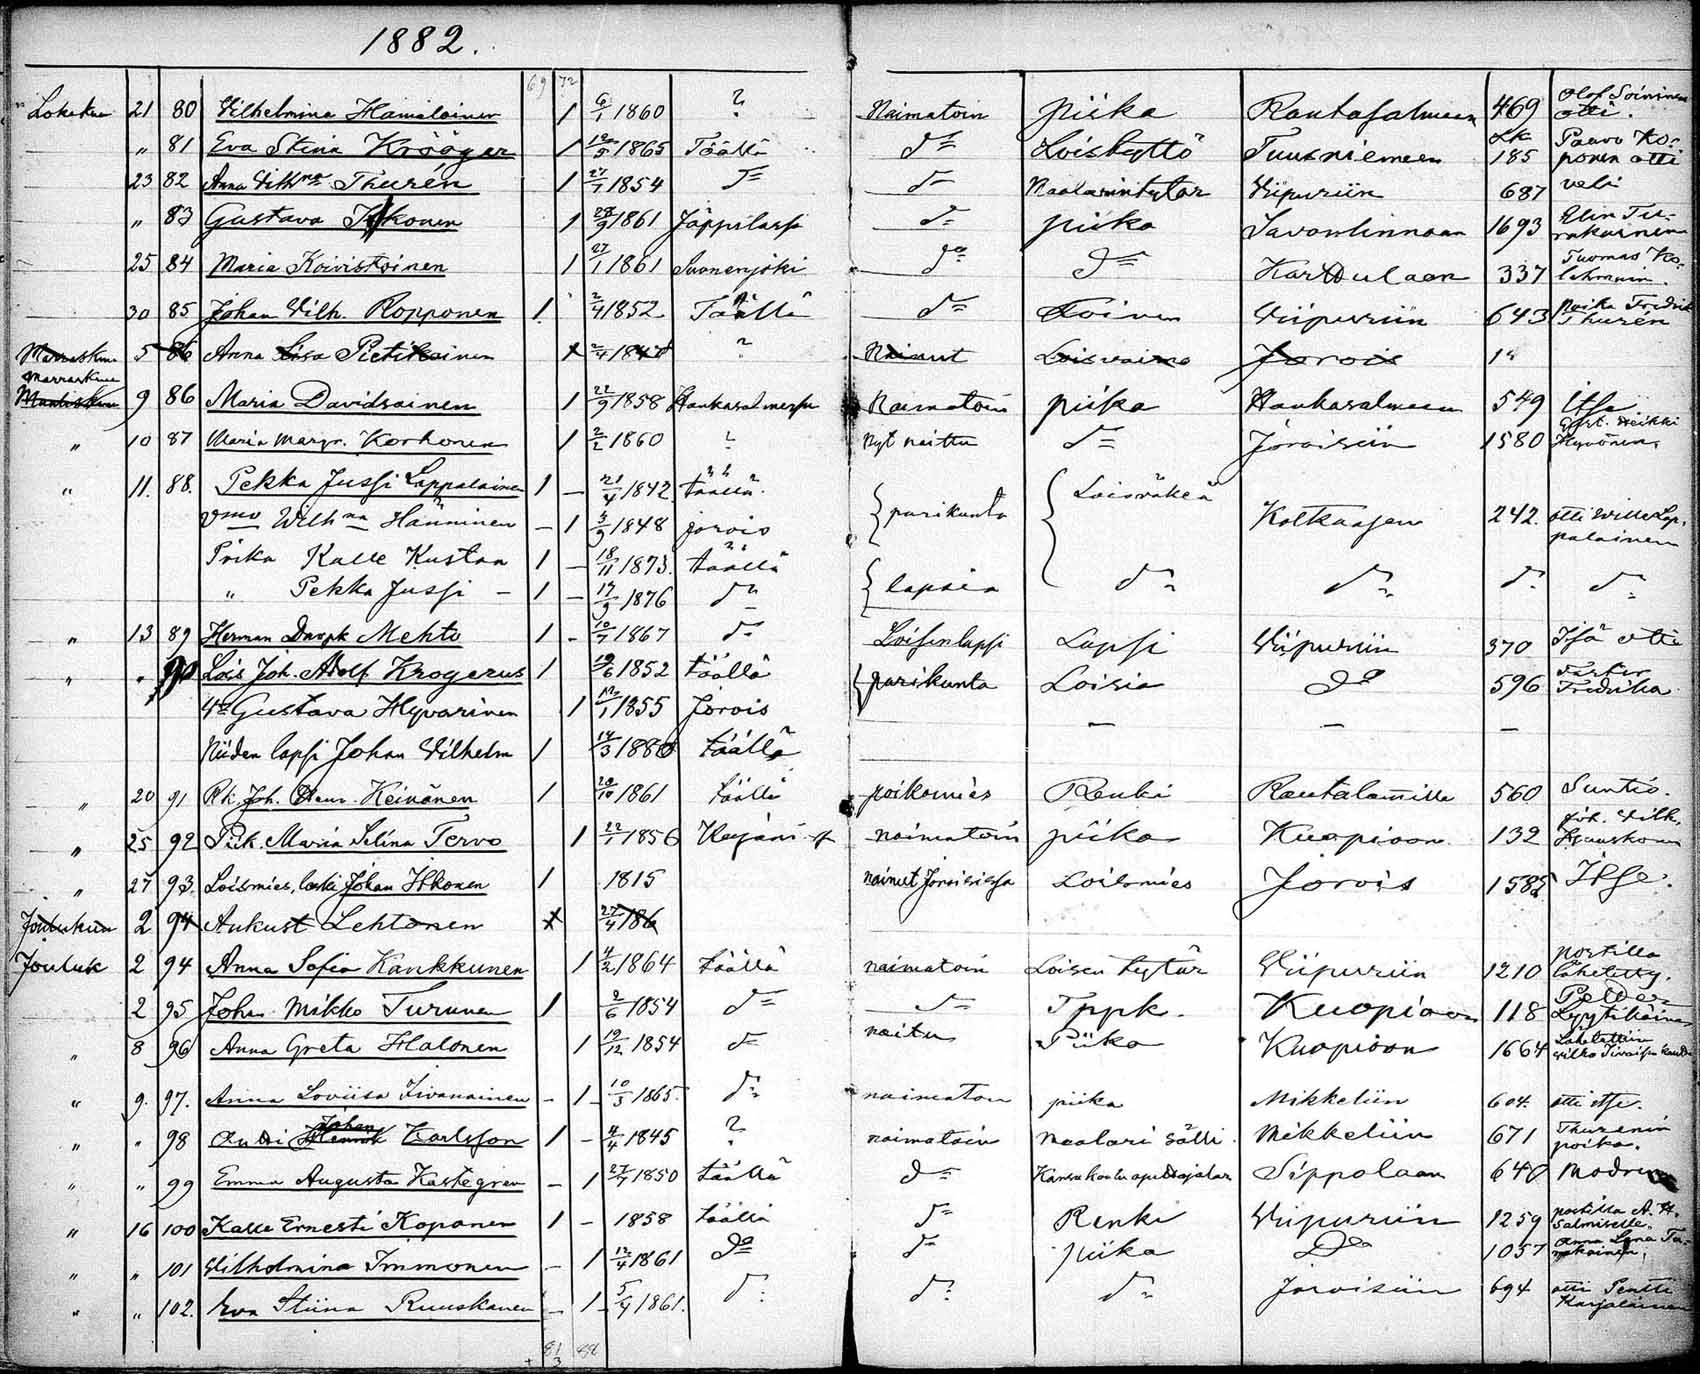 1882.
69 72
Lokakuu 21 80 Vilhelmina Hämäläinen 1 6/1 1860 ? Naimatoin piika Rautasalmeen 469 Olof Soininen otti.
„ 81 Eva Stina Krööger 1 1865 Täällä d:o Loistyttö Tuusniemeen Lk 185 Paavo Ko-ponen otti
23 82 Anna Vilh:na Thurén 1 27/7 1854 d:o d:o Maalarintytär Viipuriin 687 veli
„ 83 Gustava Ikonen 1 28/9 1861 Jäppilässä d:o piika Savonlinnaan 1693 Elin Tu-rakainen
25 84 Maria Koivistoinen 1 27/1 1861 Suonenjoki d:o d:o Karttulaan 337 Tuomas Ko-lehmain.
30 85 Johan Vilh. Ropponen 1 2/4 1852 Täällä d:o Loinen Viipuriin 643 Poika Fredrik Thurén
Marraskuu 5 86 Anna Lisa Pietikäinen 1 2/4 1840 ? Nainut Loisvaimo Jorois
Marraskuu
9 86 Maria Davidsainen 1 22/9 1858 Hankasalmessa Naimatoin piika Hankasalmeen 549 Itse
„ 10 87 Maria Margr. Korhonen 1 2/2 1860 ? Nyt naittu d:o Joroisiin 1580 Heikki Hyvönen
„ 11. 88. Pekka Jussi Lappalainen 1 – 21/4 1842 täällä. { parikunta { Loisväkeä
Vmo Wilh:na Hänninen – 1 1848 jorois Kotkaasen 242. otti Wille Lap-palainen
Poika Kalle Kustaa 1 – 18/11 1873. täällä { lapsia d:o d:o d:o d:o
„ Pekka Jussi – 1 – 17/9 1876 d:o
„ 13 89 Herman Davpk Mehto 1 – 10/7 1867 d:o Loisenlapsi Lapsi Viipuriin 370 Isä otti
„ „ 90 Lois Joh. Adolf Krogerus 1 19/6 1852 täällä { parikunta Loisia d:o 596 Faster Fredrika
Gustava Hyvärinen 1 1855 Jorois – – –
Niiden lapsi Johan Vilhelm 1 14/3 1880 täällä
„ 20 91 Rk. Joh. Henr. Keinänen 1 20/10 1861 täällä poikamies Renki Rautalammille 560 Suntio.
„ 25 92 Piik. Maria Selina Tervo 1 22/1 1856 Kajani naimatoin piika Kuopioon 132 Joh. Vilh. Hyuuskonen
„ 27 93. Loismies, leski Johan Ikonen 1 1815 nainut Joroisissa Loismies Jorois 1585 Itse.
Joulukuu 2 94 Aukust Lehtonen 1 27/4 186
Jouluk 2 94 Anna Sofia Kaukkunen 1 4/2 1864 täällä naimatoin Loisen tytär Viipuriin 1210 postilla lähetetty.
2 95 Johan Mikko Turunen 1 2/6 1854 d:o d:o Tppk. Kuopioon 118 Petter Lyytikäinen
„ 8 96 Anna Greta Halonen 1 19/12 1854 d:o naitu Piika Kuopioon 1664 Lähetettiin
„ 9. 97. Anna Loviisa Iivanainen – 1 – 10/3 1865. d:o naimaton piika Mikkeliin 604. otti itse.
„ „ 98 Antti Johan Karlsson 1 – 4/4 1845 ? naimatoin Maalari sälli. Mikkeliin 671 Thurenin poika.
„ „ 99 Emma Augusta Kastegren – 1 27/7 1850 täällä d:o Kansakoulu opettajatar Sippolaan 640
„ 16 100 Kalle Ernesti Koponen 1 – 1858 täällä d:o Renki Viipuriin 1259 postilla A. H. Salmiselle.
„ „ 101 Vilhelmina Immonen – 1 12/4 1861 d:o d:o piika D:o 1057 Anna Lena Tu-rakainen
„ „ 102. Eva Stiina Ruuskanen – 1 – 5/4 1861. d:o d:o d:o Joroisiin 694 otti Pentti Karjalainen
81 88
+ 3